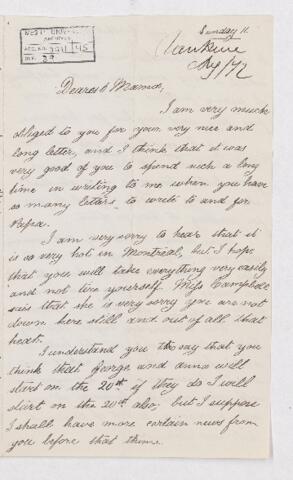 ARCHIVES
ACC. NO. 2211/45
REF. 29
Sunday 11
Aug/72
Dearest Mama,
I am very much
obliged to you for your very nice and
long letter, and I think that it was
very good of you to spend such a long
time in writing to me when you have
so many letters to write to and for
Papa.
I am very sorry to hear that it
is so very hot in Montreal, but I hope
that you will take everything very easily
and not tire yourself. Miss Campbell
sais that she is very sorry you are not
down here still and out of all that
heat.
I understand you to say that you
think that George and Anna will
start on the 20th if they do I will
start on the 20th also, but I suppose
I shall have more certain news from
you before that time.